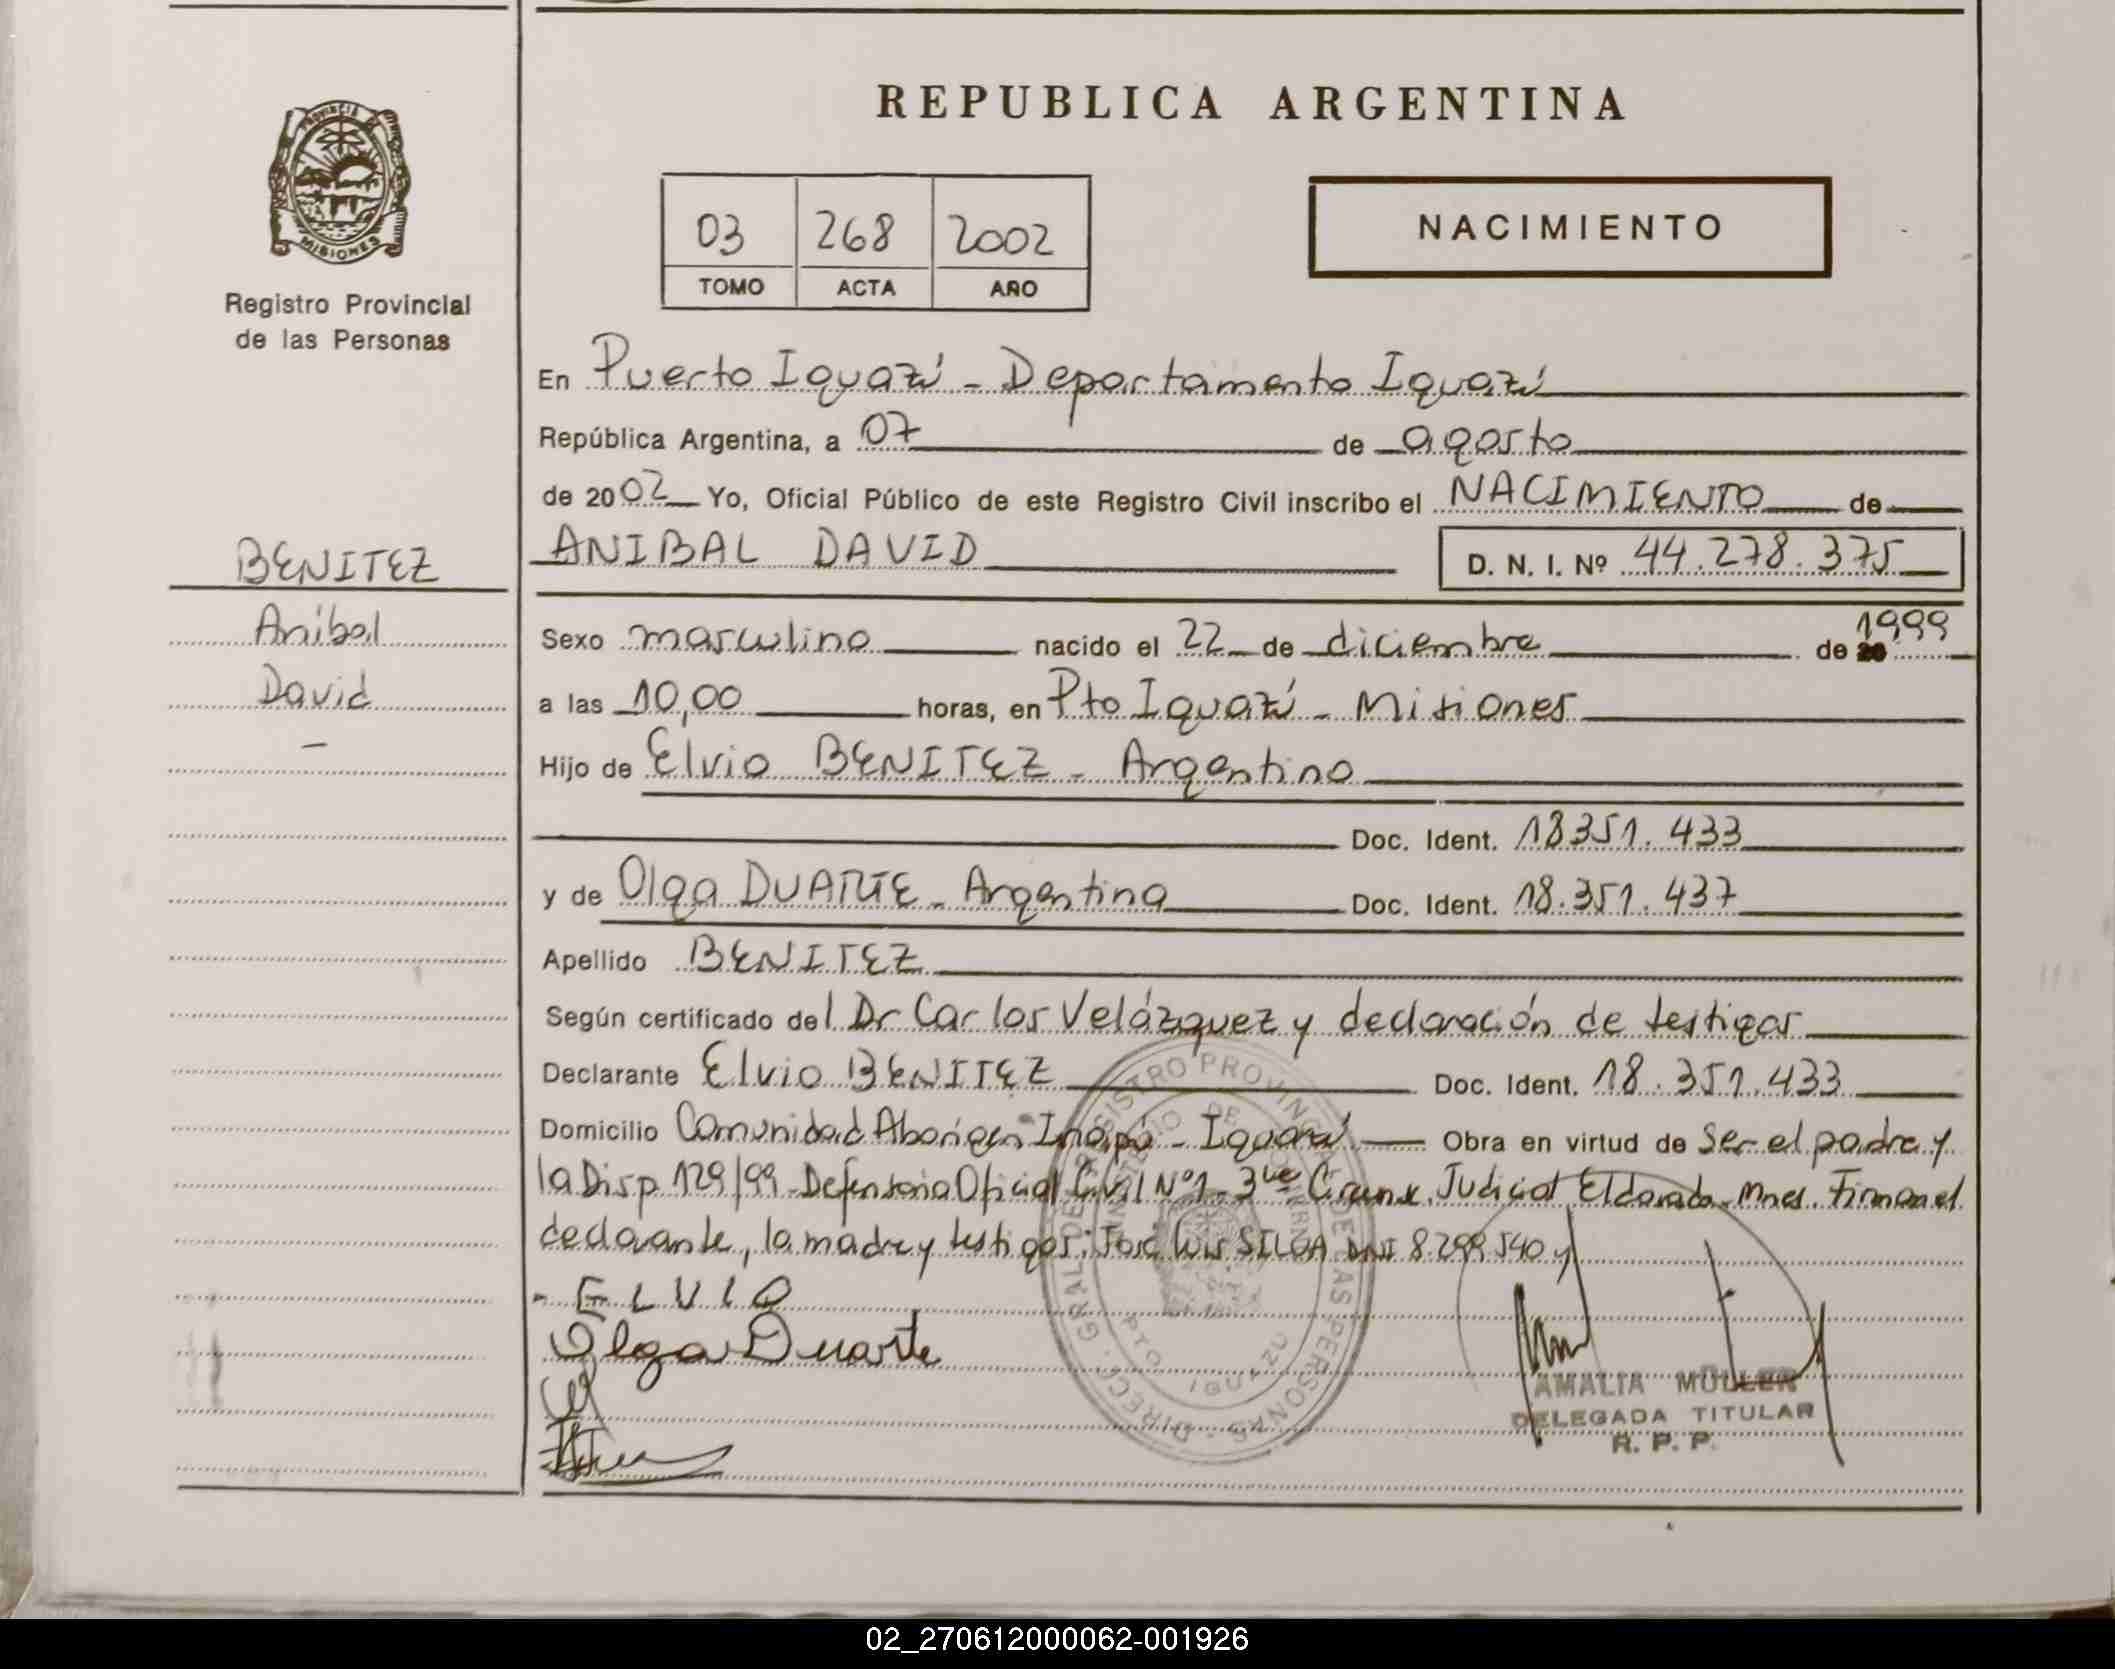 REPUBLICA ARGENTINA
PROVINCIA DE
MISIONES
Registro Provincial
de las Personas
03 268 2002
TOMO ACTA AÑO
NACIMIENTO
En Puerto Iguazú - Departamento Iguazú
República Argentina, a 07 de agosto
de 2002 Yo, Oficial Público de este Registro Civil inscribo el NACIMIENTO de
BENITEZ
Aníbal
David
-
ANIBAL DAVID D. N. I. Nº 44.278.375
Sexo masculino nacido el 22 de diciembre de 20 1999
a las 10,00 horas, en Pto Iguazú - Misiones
Hijo de Elvio BENITEZ - Argentino
Doc. Ident. 18351.433
y de Olga DUARTE - Argentina Doc. Ident. 18.351.437
Apellido BENITEZ
Según certificado del Dr Carlos Velázquez y declaración de testigos
Declarante Elvio BENITEZ Doc. Ident. 18.351.433
Domicilio Comunidad Aborigen - Iguazú Obra en virtud de Ser el padre y
la Disp 129/99 - Defensoria Oficial Civil Nº1 - 3ra Judicial Eldorado - Mnes. Firman el
declarante, la madre y testigos: José Luis DNI 8.299.540 y
- ELVIO
Olga Duarte
DIREC. GRAL. DE REGISTRO PROVINCIAL DE LAS PERSONAS
MINISTERIO DE GOBIERNO
PTO IGUAZU
AMALIA MÜLLER
DELEGADA TITULAR
R. P. P.
02_270612000062-001926